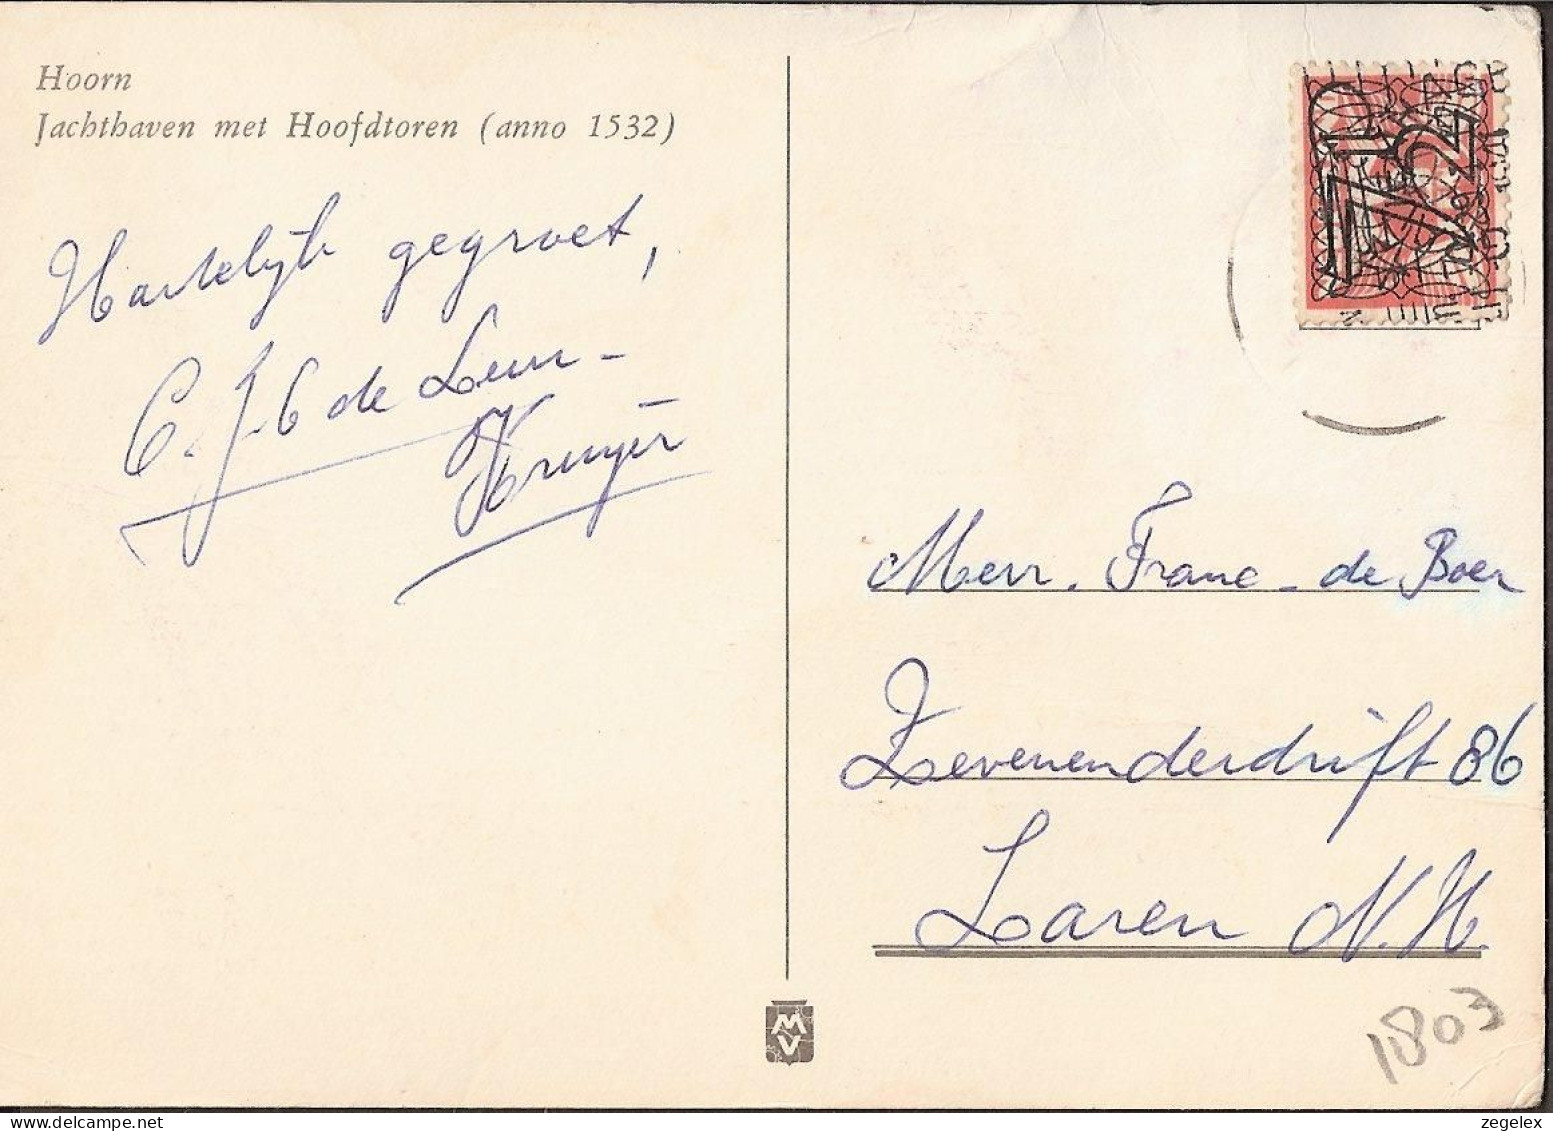 Hoorn
Jachthaven met Hoofdtoren (anno 1532)
Hartelijk gegroet,
C. J. G de Leur -
Kruijer
7½
Mevr. Franc - de Boer
Zevenenderdrift 86
Laren N.H.
MV
1803
www.delcampe.net
zegelex